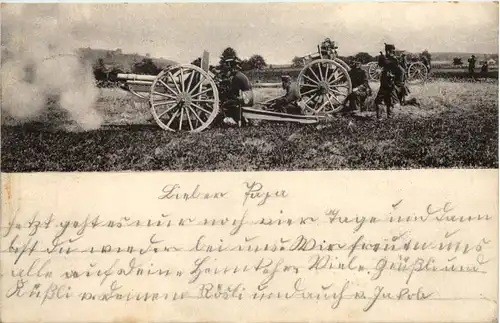 Lieber Papa
Jetzt geht es nur noch vier Tage und dann
bist du wieder bei uns Wir freuen uns
alle auf deine Heimkehr Viele Grüßli und
Küßli v. deinem Rösli und auch v. Jakob